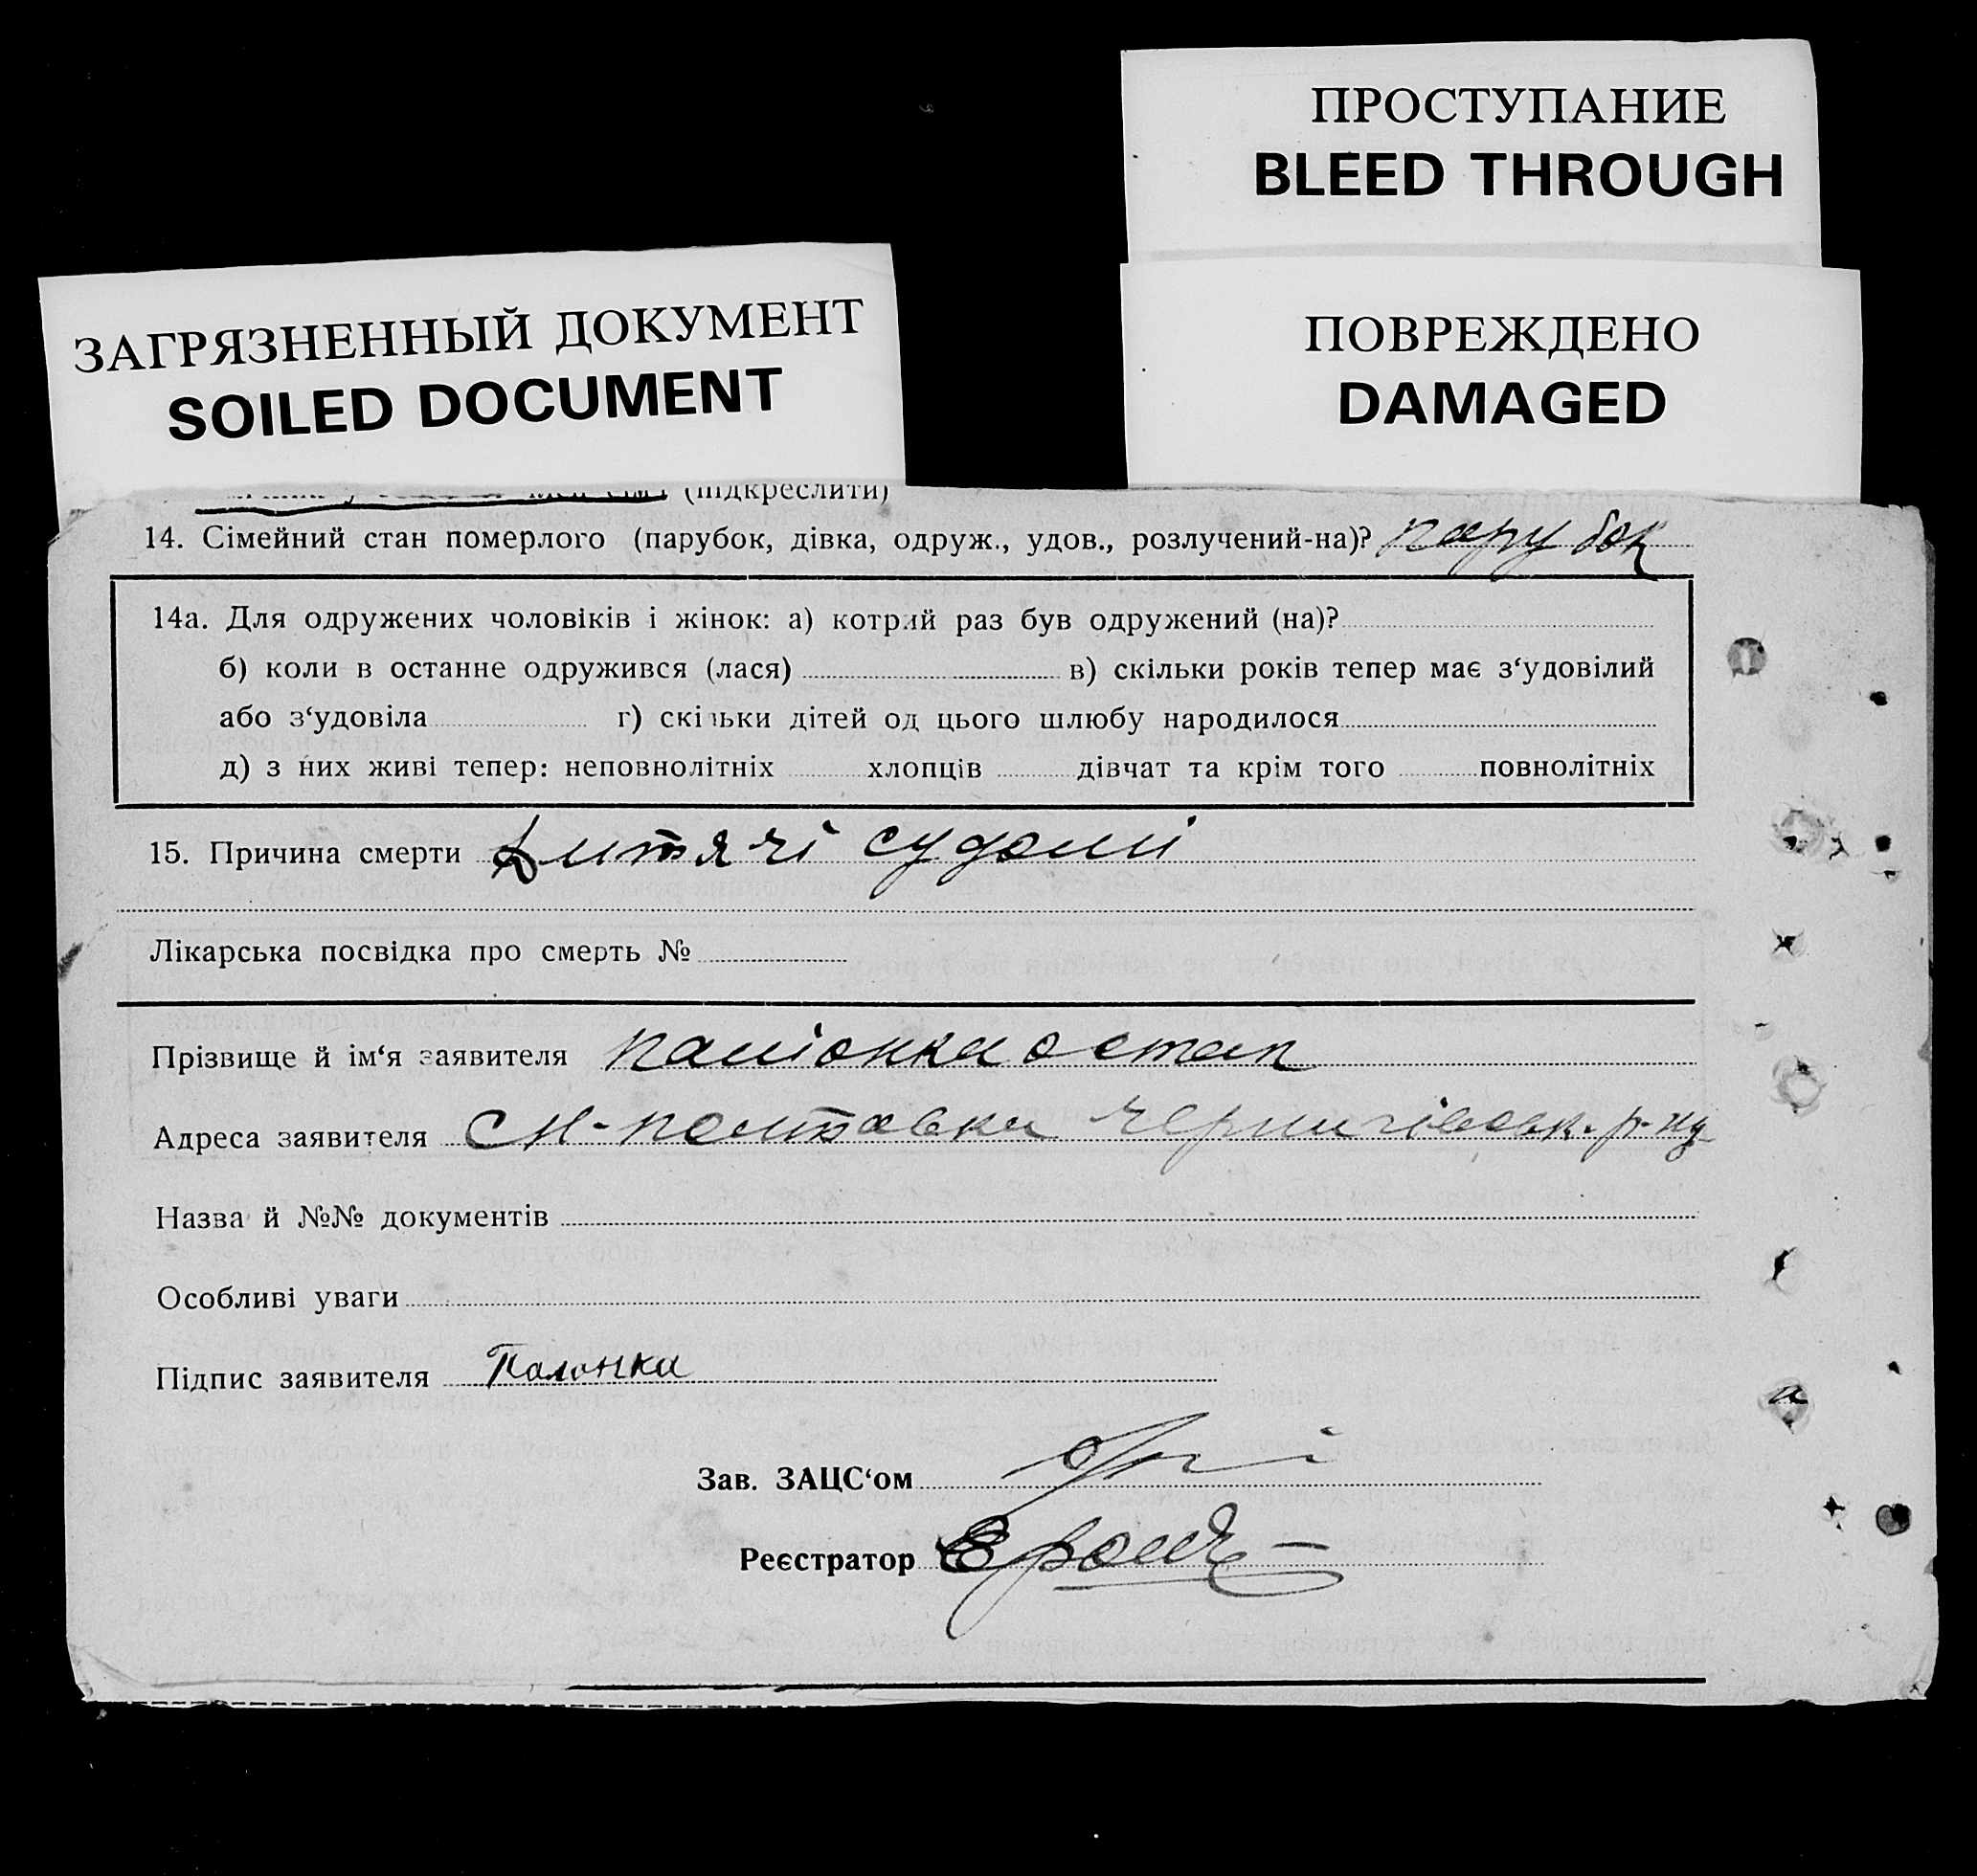 ПРОСТУПАНИЕ
BLEED THROUGH
ЗАГРЯЗНЕННЫЙ ДОКУМЕНТ
SOILED DOCUMENT
ПОВРЕЖДЕНО
DAMAGED
(підкреслити)
14. Сімейний стан померлого (парубок, дівка, одруж., удов., розлучений-на)? парубок
14а. Для одружених чоловіків і жінок: а) котрий раз був одружений (на)?
б) коли в останне одружився (лася) в) скільки років тепер має з‘удовілий
або з‘удовіла г) скільки дітей од цього шлюбу народилося
д) з них живі тепер: неповнолітніх хлопців дівчат та крім того повнолітніх
15. Причина смерти Дитячі судомі
Лікарська посвідка про смерть №
Прізвище й ім‘я заявителя Остап
Адреса заявителя Н-Полтавка Чернигівськ. р-ну
Назва й №№ документів
Особливі уваги
Підпис заявителя Палонка
Зав. ЗАЦС‘ом
Реєстратор